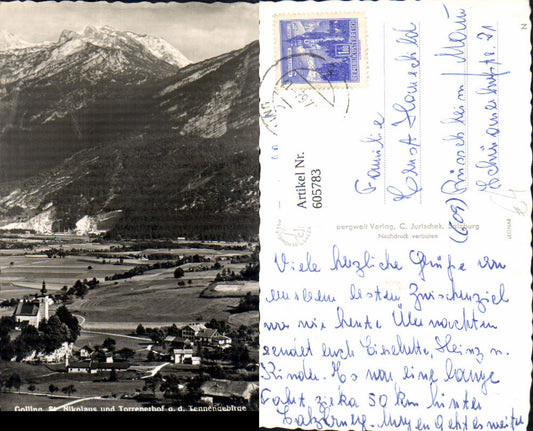 Golling, St. Nikolaus und Torrenerhof a. d. Tennengebirge
REPUBLIK ÖSTERREICH
Artikel Nr.
605783
Familie
Ernst
(609) Rüsselsheim/Main
71
Bergwelt Verlag, C. Jurischek, Salzburg
Nachdruck verboten
Viele herzliche Grüße von
unserem ersten Zwischenziel
wo wir heute Übernachten
sendet euch Liselotte, Heinz u.
Kinder. Es war eine lange
Fahrt, zirka 50 km hinter
Salzburg. Morgen geht es weiter